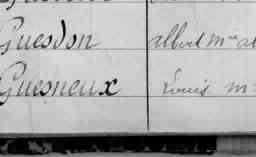 Guesdon albert Mce al
Guesneux Louis M